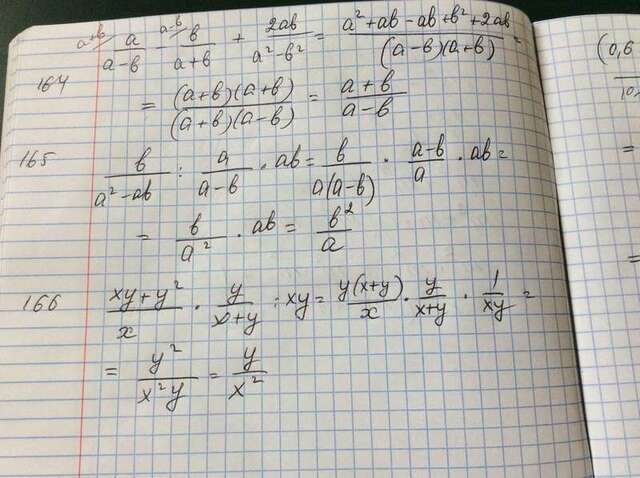 a+b/ a/(a-b) - a-b/ b/(a+b) + 2ab/(a²-b²) = (a²+ab-ab+b²+2ab)/((a-b)(a+b)) =
164 = ((a+b)(a+b))/((a+b)(a-b)) = (a+b)/(a-b)
165 b/(a²-ab) : a/(a-b) · ab = b/(a(a-b)) · (a-b)/a · ab =
= b/a² · ab = b²/a
166 (xy+y²)/x · y/(x+y) : xy = y(x+y)/x · y/(x+y) · 1/(xy) =
= y²/(x²y) = y/x²
(0,6
=
=